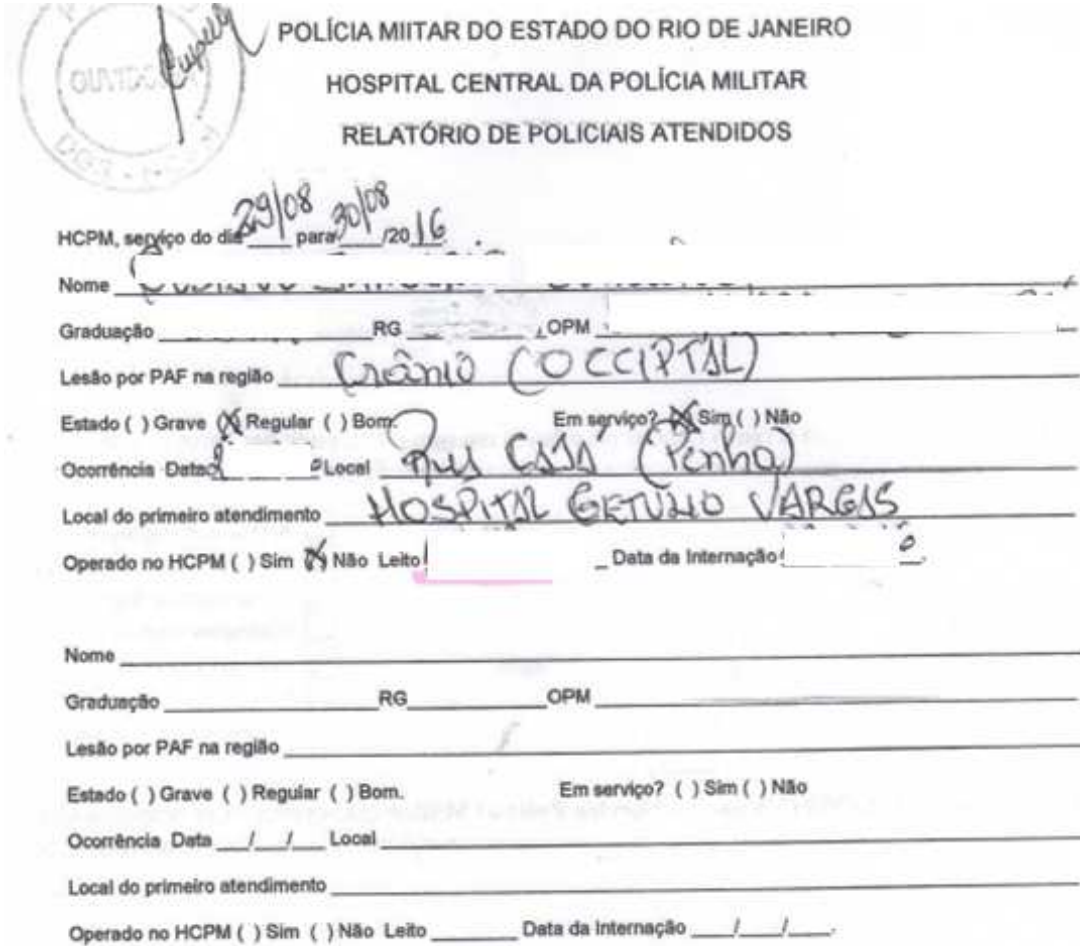 POLÍCIA MIITAR DO ESTADO DO RIO DE JANEIRO
HOSPITAL CENTRAL DA POLÍCIA MILITAR
RELATÓRIO DE POLICIAIS ATENDIDOS
HCPM, serviço do dia 29/08 para 30/08 /20 16
Nome
Graduação RG OPM
Lesão por PAF na região Crânio (OCCIPTAL)
Estado ( ) Grave (X) Regular ( ) Bom. Em serviço? (X) Sim ( ) Não
Ocorrência Data Local (Penha)
Local do primeiro atendimento HOSPITAL GETÚLIO VARGAS
Operado no HCPM ( ) Sim (X) Não Leito Data da Internação
Nome
Graduação RG OPM
Lesão por PAF na região
Estado ( ) Grave ( ) Regular ( ) Bom. Em serviço? ( ) Sim ( ) Não
Ocorrência Data __/__/__ Local
Local do primeiro atendimento
Operado no HCPM ( ) Sim ( ) Não Leito Data da Internação __/__/__.